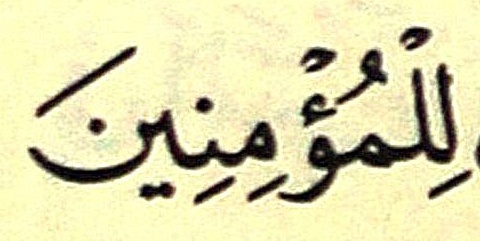 لِلْمُؤْمِنِينَ